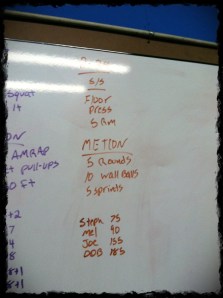 S/S
Floor
Press
5 Rm
METCON
5 Rounds
10 wall Balls
5 sprints
Steph 75
Mel 90
Joe 155
DOB 185
Squat
ON
AMRAP
pull-ups
+2
7
4
8
8+1
8+1